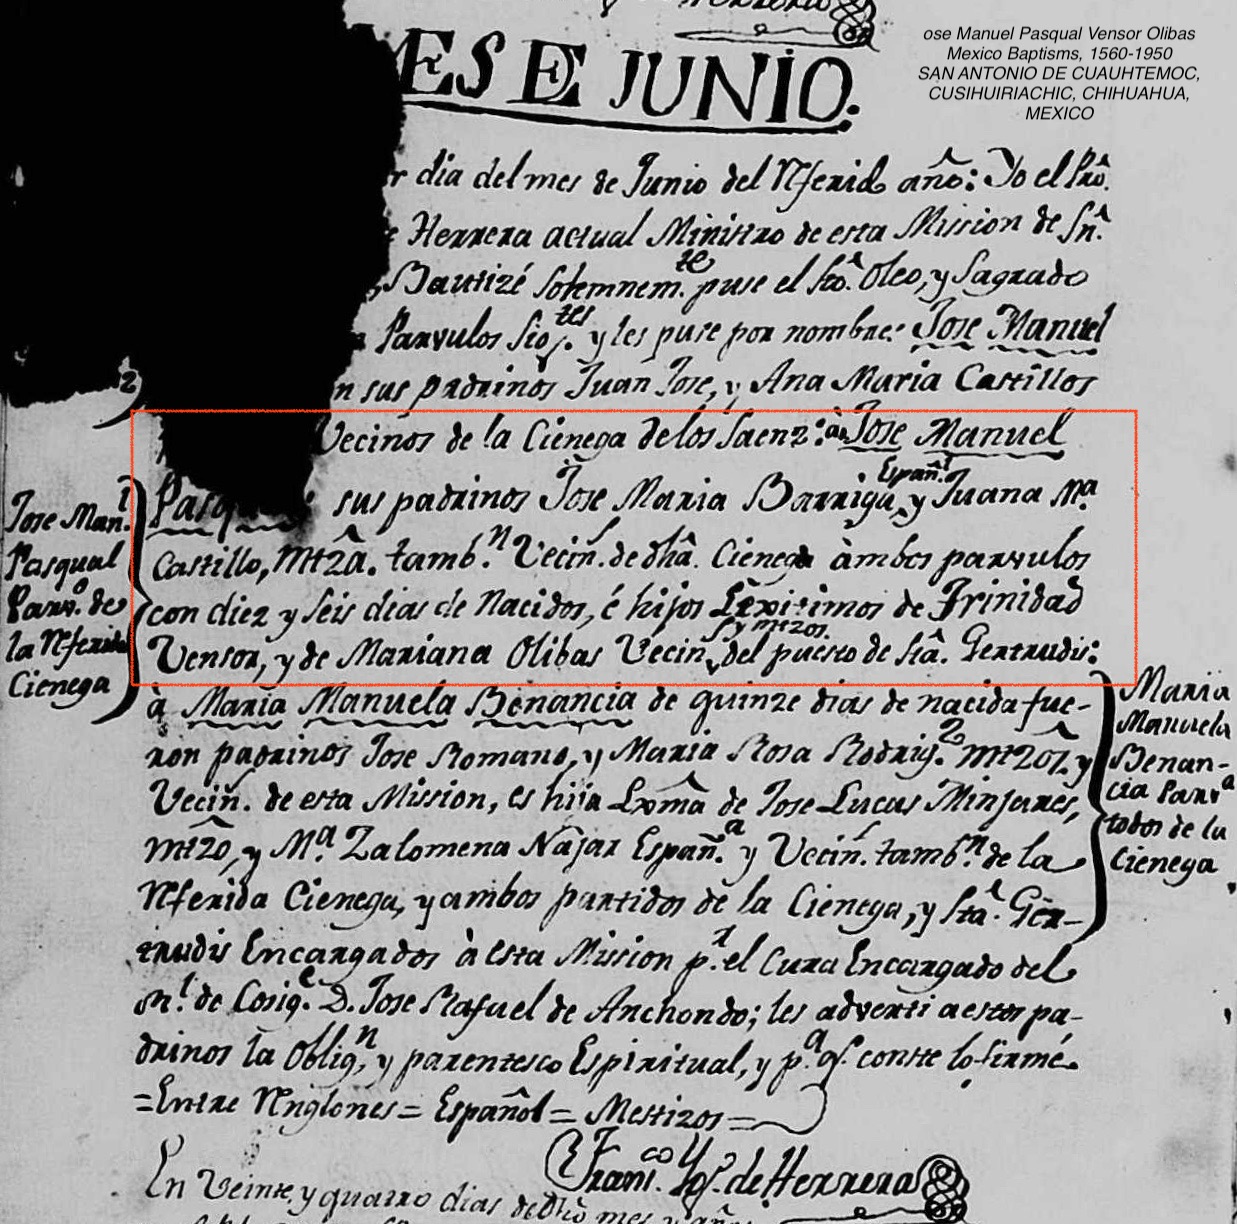 ose Manuel Pasqual Vensor Olibas
Mexico Baptisms, 1560-1950
SAN ANTONIO DE CUAUHTEMOC,
CUSIHUIRIACHIC, CHIHUAHUA,
MEXICO
ES DE JUNIO.
r dia del mes de Junio del Rferido año: Yo el Pro.
Herrera actual Ministro de esta Mission de Sn.
Bautizé Solemnem.te puse el sto. Oleo, y Sagrado
Parvulos Sig.tes y les puse por nombre: Jose Manuel
n sus padrinos Juan Jose, y Ana Maria Castillos
Vecinos de la Cienega de los Saenz: à Jose Manuel
Pasq sus padrinos Jose Maria Barriga, Españ.l y Juana Ma
Castillo, mtza. tamb.n Vecin.s de dha. Cienega àmbos parvulos
con diez y seis dias de Nacidos, é hijos Lexitimos de Trinidad
Vensor, y de Mariana Olibas Vecin.s y mtzos. del puesto de sta. Gertrudis:
à Maria Manuela Benancia de quinze dias de nacida fue-
ron padrinos Jose Romano, y Maria Rosa Rodrig.z mtzos. y
Vecin.s de esta Mission, es hija Lxma de Jose Lucas Minjares,
mtzo, y M.a Zalomena Najar Españ.a y Vecin.s tamb.n de la
Rferida Cienega, y ambos partidos de la Cienega, y sta. Ger-
trudis Encargados à esta Mission p.r el Cura Encargado del
Rl. de Cosig.e D. Jose Rafael de Anchondo; les adverti a estos pa-
drinos la Oblig.n, y parentesco Espiritual, y p.a q.e conste lo firmé.
=Entre Renglones= Español= Mestizos=
Fran.co Jos. de Herrera
En Veinte, y quatro dias de dho mes y año
Jose Man.l
Pasqual
Parv.o de
la Rferida
Cienega
Maria
Manuela
Benan-
cia Parv.a
todos de la
Cienega